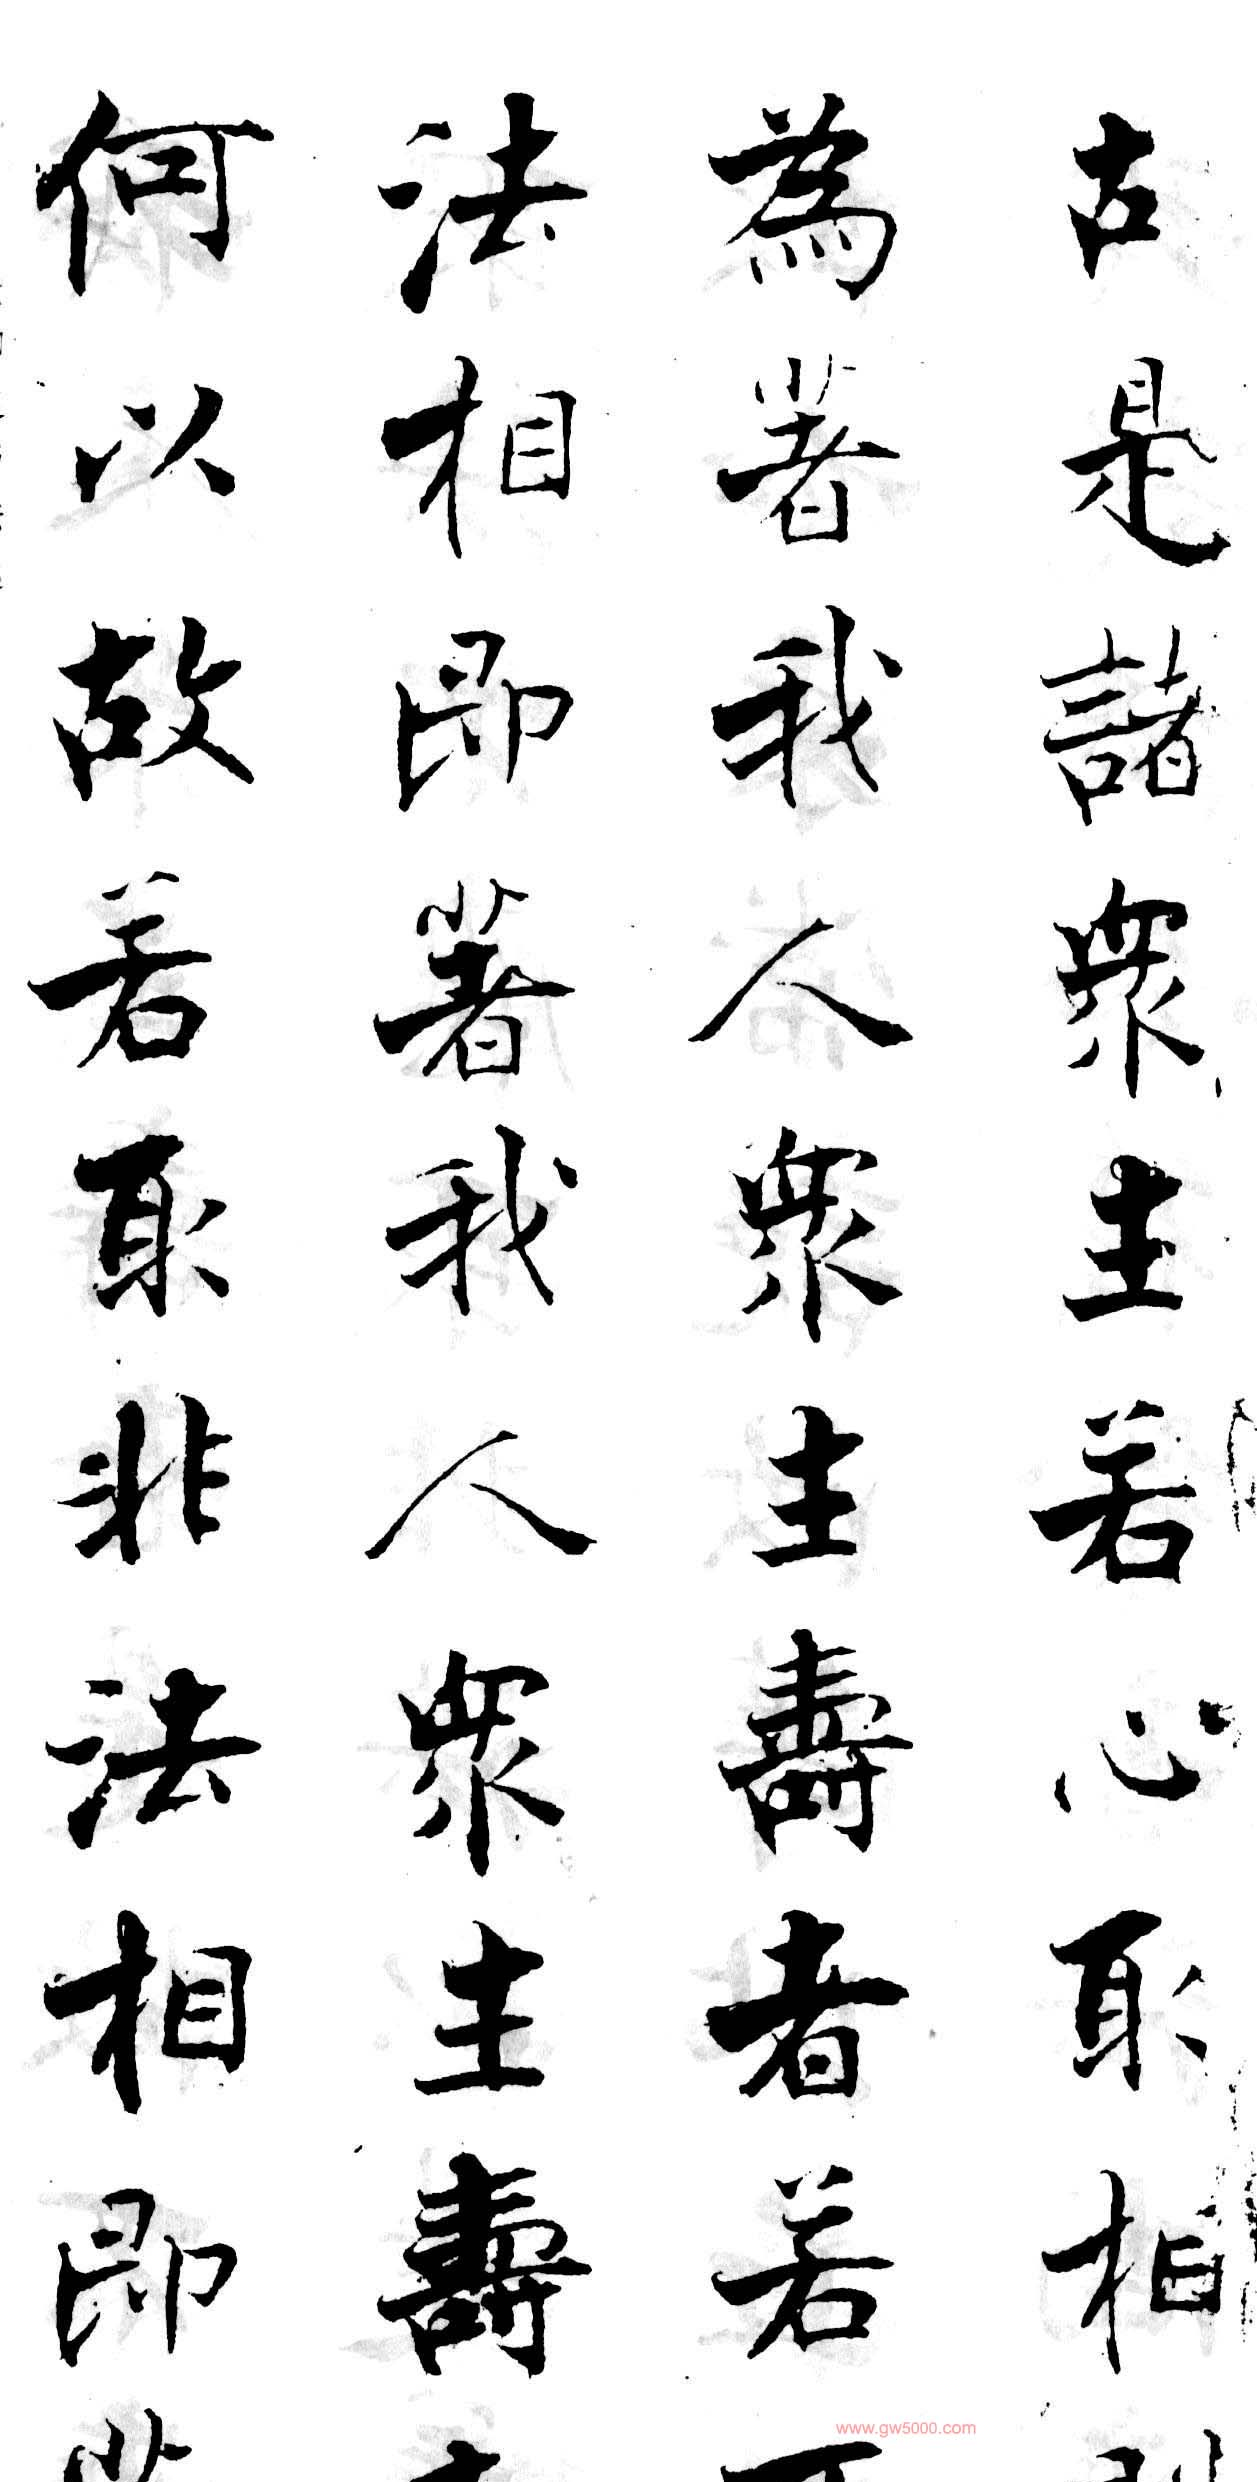 是諸眾生若心取相
為著我人眾生壽者若
法相即著我人眾生壽
何以故若取非法相即
www.gw5000.com